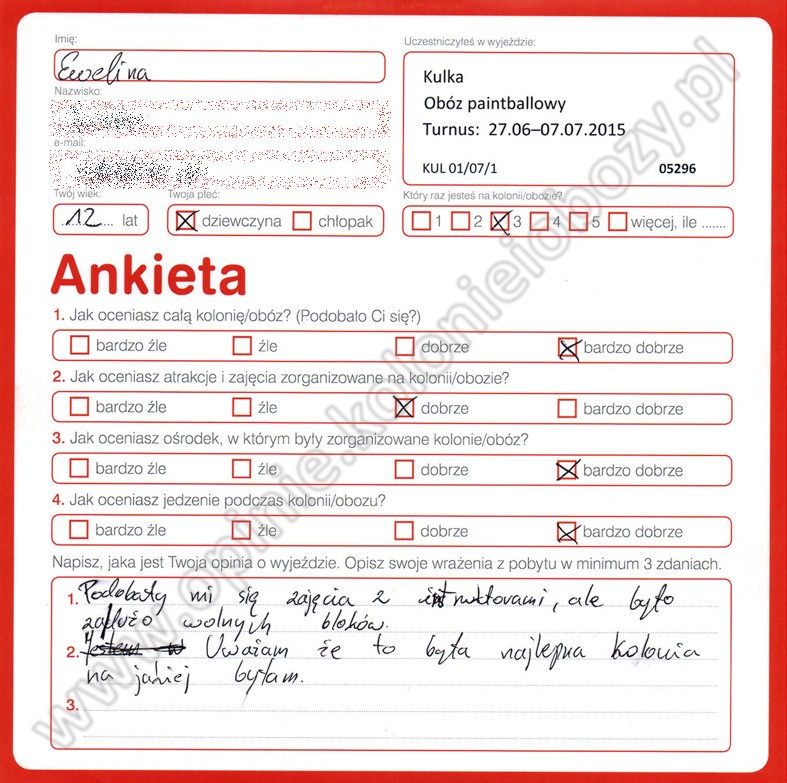 Imię:
Ewelina
Nazwisko:
e-mail:
Twój wiek:
12 lat
Twoja płeć:
dziewczyna chłopak
Uczestniczyłeś w wyjeździe:
Kulka
Obóz paintballowy
Turnus: 27.06–07.07.2015
KUL 01/07/1 05296
Który raz jesteś na kolonii/obozie?
1 2 3 4 5 więcej, ile .......
Ankieta
1. Jak oceniasz całą kolonię/obóz? (Podobało Ci się?)
bardzo źle źle dobrze bardzo dobrze
2. Jak oceniasz atrakcje i zajęcia zorganizowane na kolonii/obozie?
bardzo źle źle dobrze bardzo dobrze
3. Jak oceniasz ośrodek, w którym były zorganizowane kolonie/obóz?
bardzo źle źle dobrze bardzo dobrze
4. Jak oceniasz jedzenie podczas kolonii/obozu?
bardzo źle źle dobrze bardzo dobrze
Napisz, jaka jest Twoja opinia o wyjeździe. Opisz swoje wrażenia z pobytu w minimum 3 zdaniach.
1. Podobały mi się zajęcia z instruktorami, ale było
zadużo wolnych bloków.
2. Uważam że to była najlepsza kolonia
na jakiej byłam.
3.
www.opinie.kolonieiobozy.pl